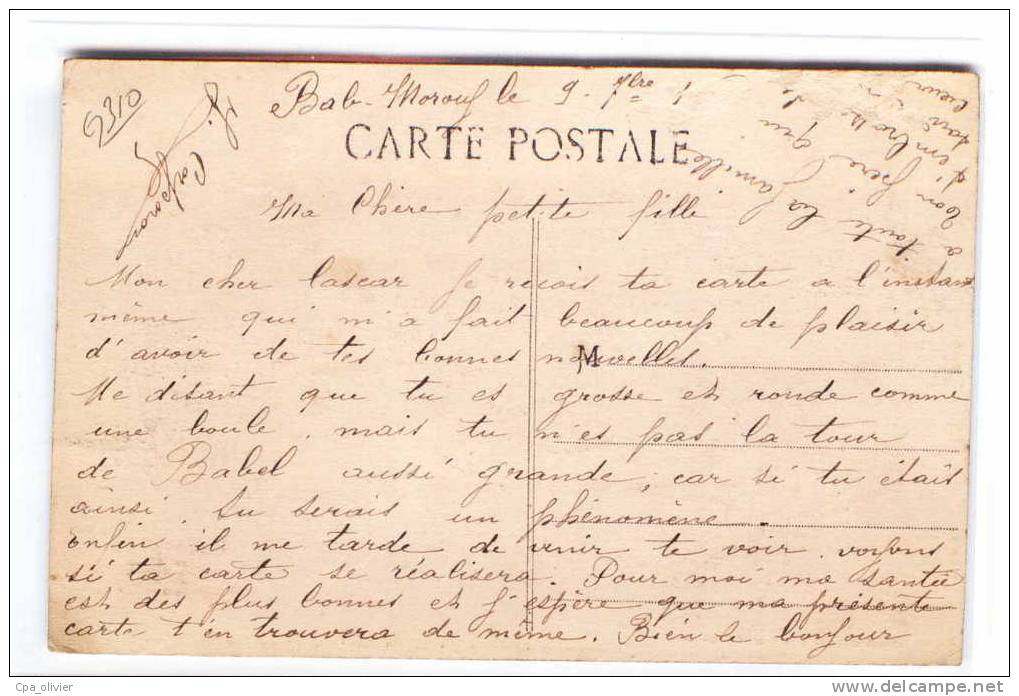 2310
Bab-Morouj le 9. 7bre 1
CARTE POSTALE
Ma Chère petite fille
Mon cher lascar Je reçois ta carte a l'instant
même qui m'a fait beaucoup de plaisir
d'avoir de tes bonnes nouvelles.
M
Me disant que tu es grosse et ronde comme
une boule, mais tu n'es pas la tour
de Babel aussi grande, car si tu étais
ainsi. tu serais un phénomène.
enfin il me tarde de venir te voir. voyons
si ta carte se réalisera. Pour moi ma santée
est des plus bonnes et j'espère que ma présente
carte t'en trouvera de même. Bien le bonjour
a toute la famille
Ton frère qui
t'embrosse de
cœur
Cpa_olivier
www.delcampe.net